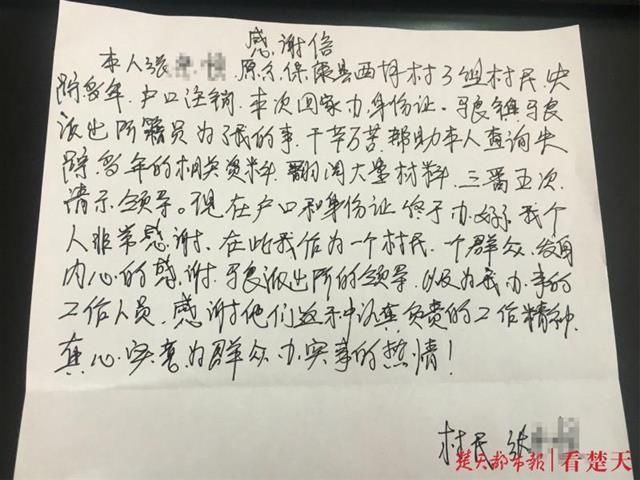 感谢信
本人张 原为保康县西坪村3组村民,失
踪多年,户口注销,本次回家办身份证。马良镇马良
派出所籍员为了我的事,千辛万苦帮助本人查询失
踪多年的相关资料,翻阅大量材料,三番五次
请示领导。现在户口和身份证终于办好,我个
人非常感谢,在此我作为一个村民,一个群众,发自
内心的感谢,马良派出所的领导,以及为我办事的
工作人员,感谢他们这种认真负责的工作精神,
真心实意为群众办实事的热情!
村民 张
楚天都市报|看楚天